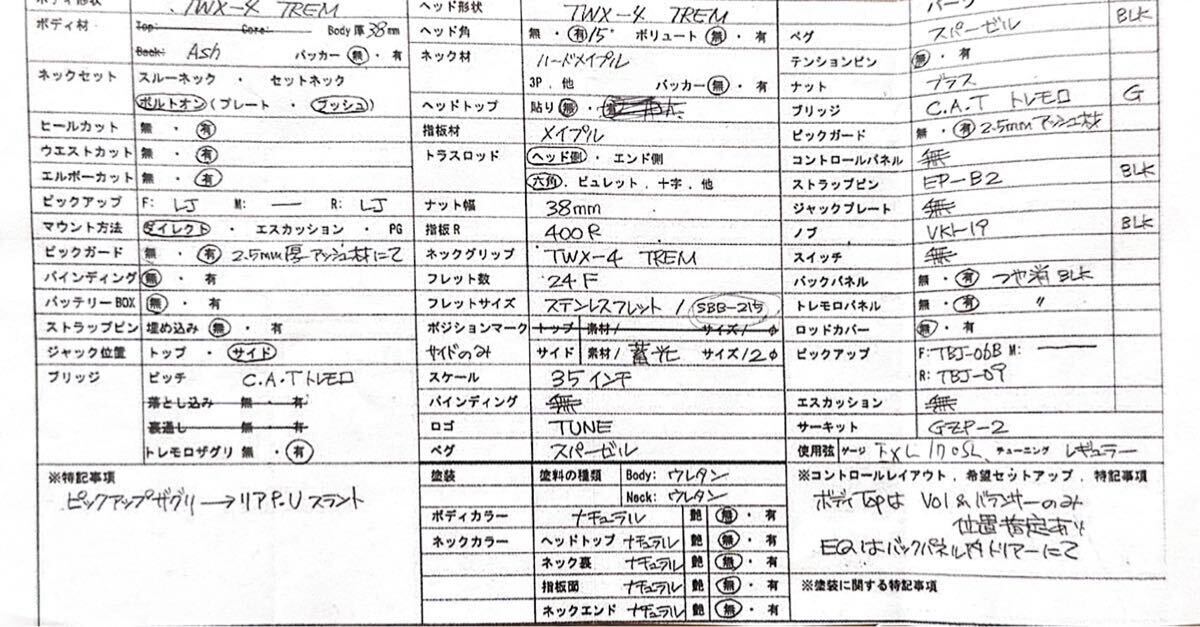 ボディ形状 TWX-4 TREM
ボディ材 Top: Core: Body厚38mm
Back: Ash バッカー 無・有
ネックセット スルーネック ・ セットネック
ボルトオン(プレート ・ ブッシュ)
ヒールカット 無 ・ 有
ウエストカット 無 ・ 有
エルボーカット 無 ・ 有
ピックアップ F: LJ M: ー R: LJ
マウント方法 ダイレクト ・ エスカッション ・ PG
ピックガード 無 ・ 有 2.5mm厚アッシュ材にて
バインディング 無 ・ 有
バッテリーBOX 無 ・ 有
ストラップピン 埋め込み 無 ・ 有
ジャック位置 トップ ・ サイド
ブリッジ ピッチ C.A.Tトレモロ
落とし込み 無 ・ 有
裏通し 無 ・ 有
トレモロザグリ 無 ・ 有
※特記事項
ピックアップザグリ→リアP.Uスラント
ヘッド形状 TWX-4 TREM
ヘッド角 無 ・ 有15° ボリュート 無 ・ 有
ネック材 ハードメイプル
3P, 他 バッカー 無・有
ヘッドトップ 貼り 無 ・
指板材 メイプル
トラスロッド ヘッド側 ・ エンド側
六角, ビュレット, 十字, 他
ナット幅 38mm
指板R 400R
ネックグリップ TWX-4 TREM
フレット数 24F
フレットサイズ ステンレスフレット / SBB-215
ポジションマーク トップ 素材/ サイズ/ φ
サイドのみ サイド 素材/ 蓄光 サイズ/2φ
スケール 35インチ
バインディング 無
ロゴ TUNE
ペグ スパーゼル
塗装 塗料の種類 Body: ウレタン
Neck: ウレタン
ボディカラー ナチュラル 艶 無 ・ 有
ネックカラー ヘッドトップ ナチュラル 艶 無 ・ 有
ネック裏 ナチュラル 艶 無 ・ 有
指板面 ナチュラル 艶 無 ・ 有
ネックエンド ナチュラル 艶 無 ・ 有
パーツ
ペグ スパーゼル BLK
テンションピン 無 ・ 有
ナット ブラス
ブリッジ C.A.T トレモロ G
ピックガード 無 ・ 有 2.5mmアッシュ材
コントロールパネル 無
ストラップピン EP-B2 BLK
ジャックプレート 無
ノブ VKI-19 BLK
スイッチ 無
バックパネル 無 ・ 有 つや消BLK
トレモロパネル 無 ・ 有 〃
ロッドカバー 無 ・ 有
ピックアップ F:TBJ-06B M: ー
R: TBJ-09
エスカッション 無
サーキット GZP-2
使用弦 ゲージ チューニング レギュラー
※コントロールレイアウト, 希望セットアップ, 特記事項
ボディTopは Vol&バランサーのみ
位置指定あり
EQはバックパネル内トリマーにて
※塗装に関する特記事項